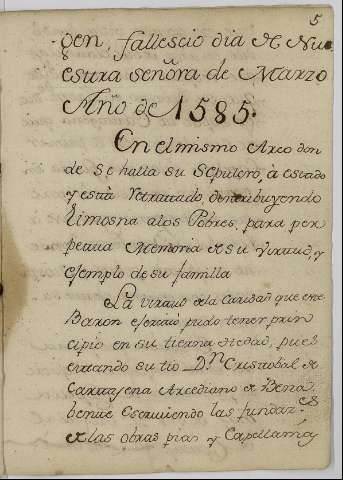 5
gen, fallescio dia de Nu
estra señora de Marzo
Año de 1585.
En el mismo Arco don
de se halla su Sepulcro, à estado
y està Retratado, destribuyendo
Limosna alos Pobres, para per
petua Memoria de su virtud, y
exemplo de su familia
La virtud de la Caridad que este
Baron exercio pudo tener prin
cipio en su tierna hedad, pues
estando su tio Dn Cristobal de
Cartaxena Arcediano de Bena
bente escriviendo las fundaz.es
de las obras pias y Capellanias